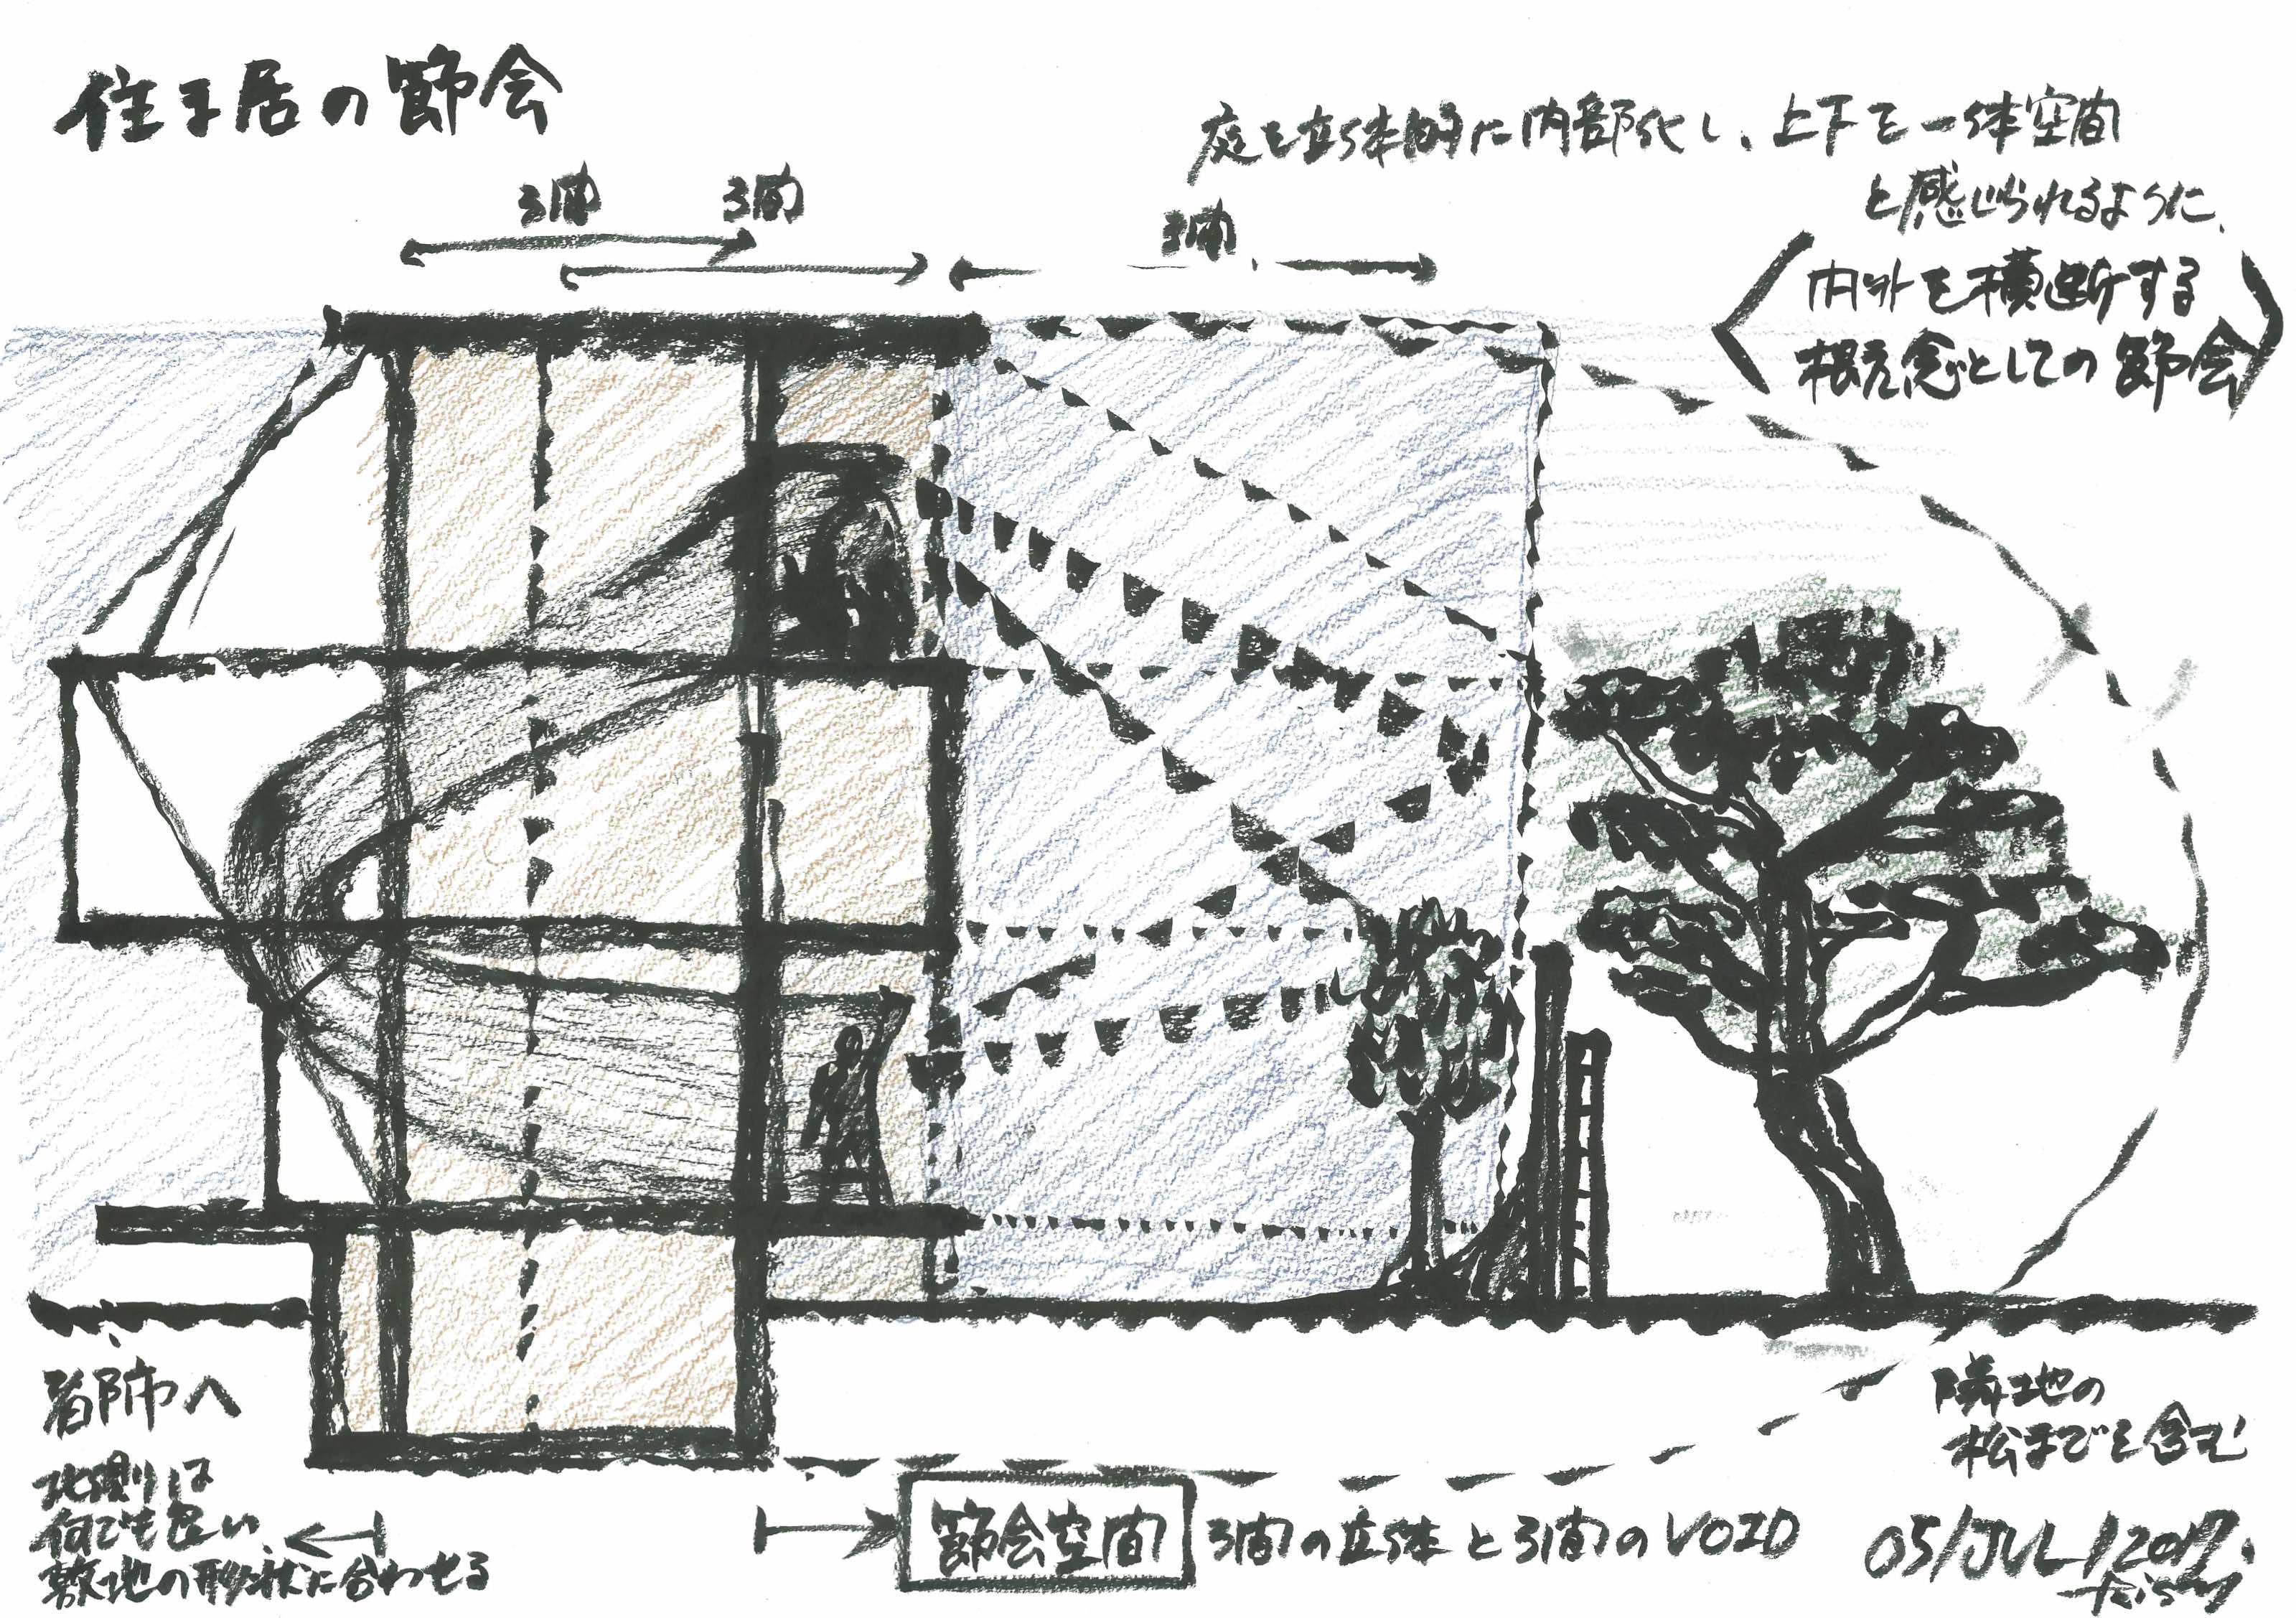 住ま居の節会
庭を立体的に内部化し、上下を一体空間
と感じられるように、
内外を横断する
概念としての節会
3間
3間
3間
都市へ
北側は
何でも良い、
敷地の形状に合わせる
節会空間 3間の立体と3間のVOID
隣地の
松までを含む
05/JUL/2017.